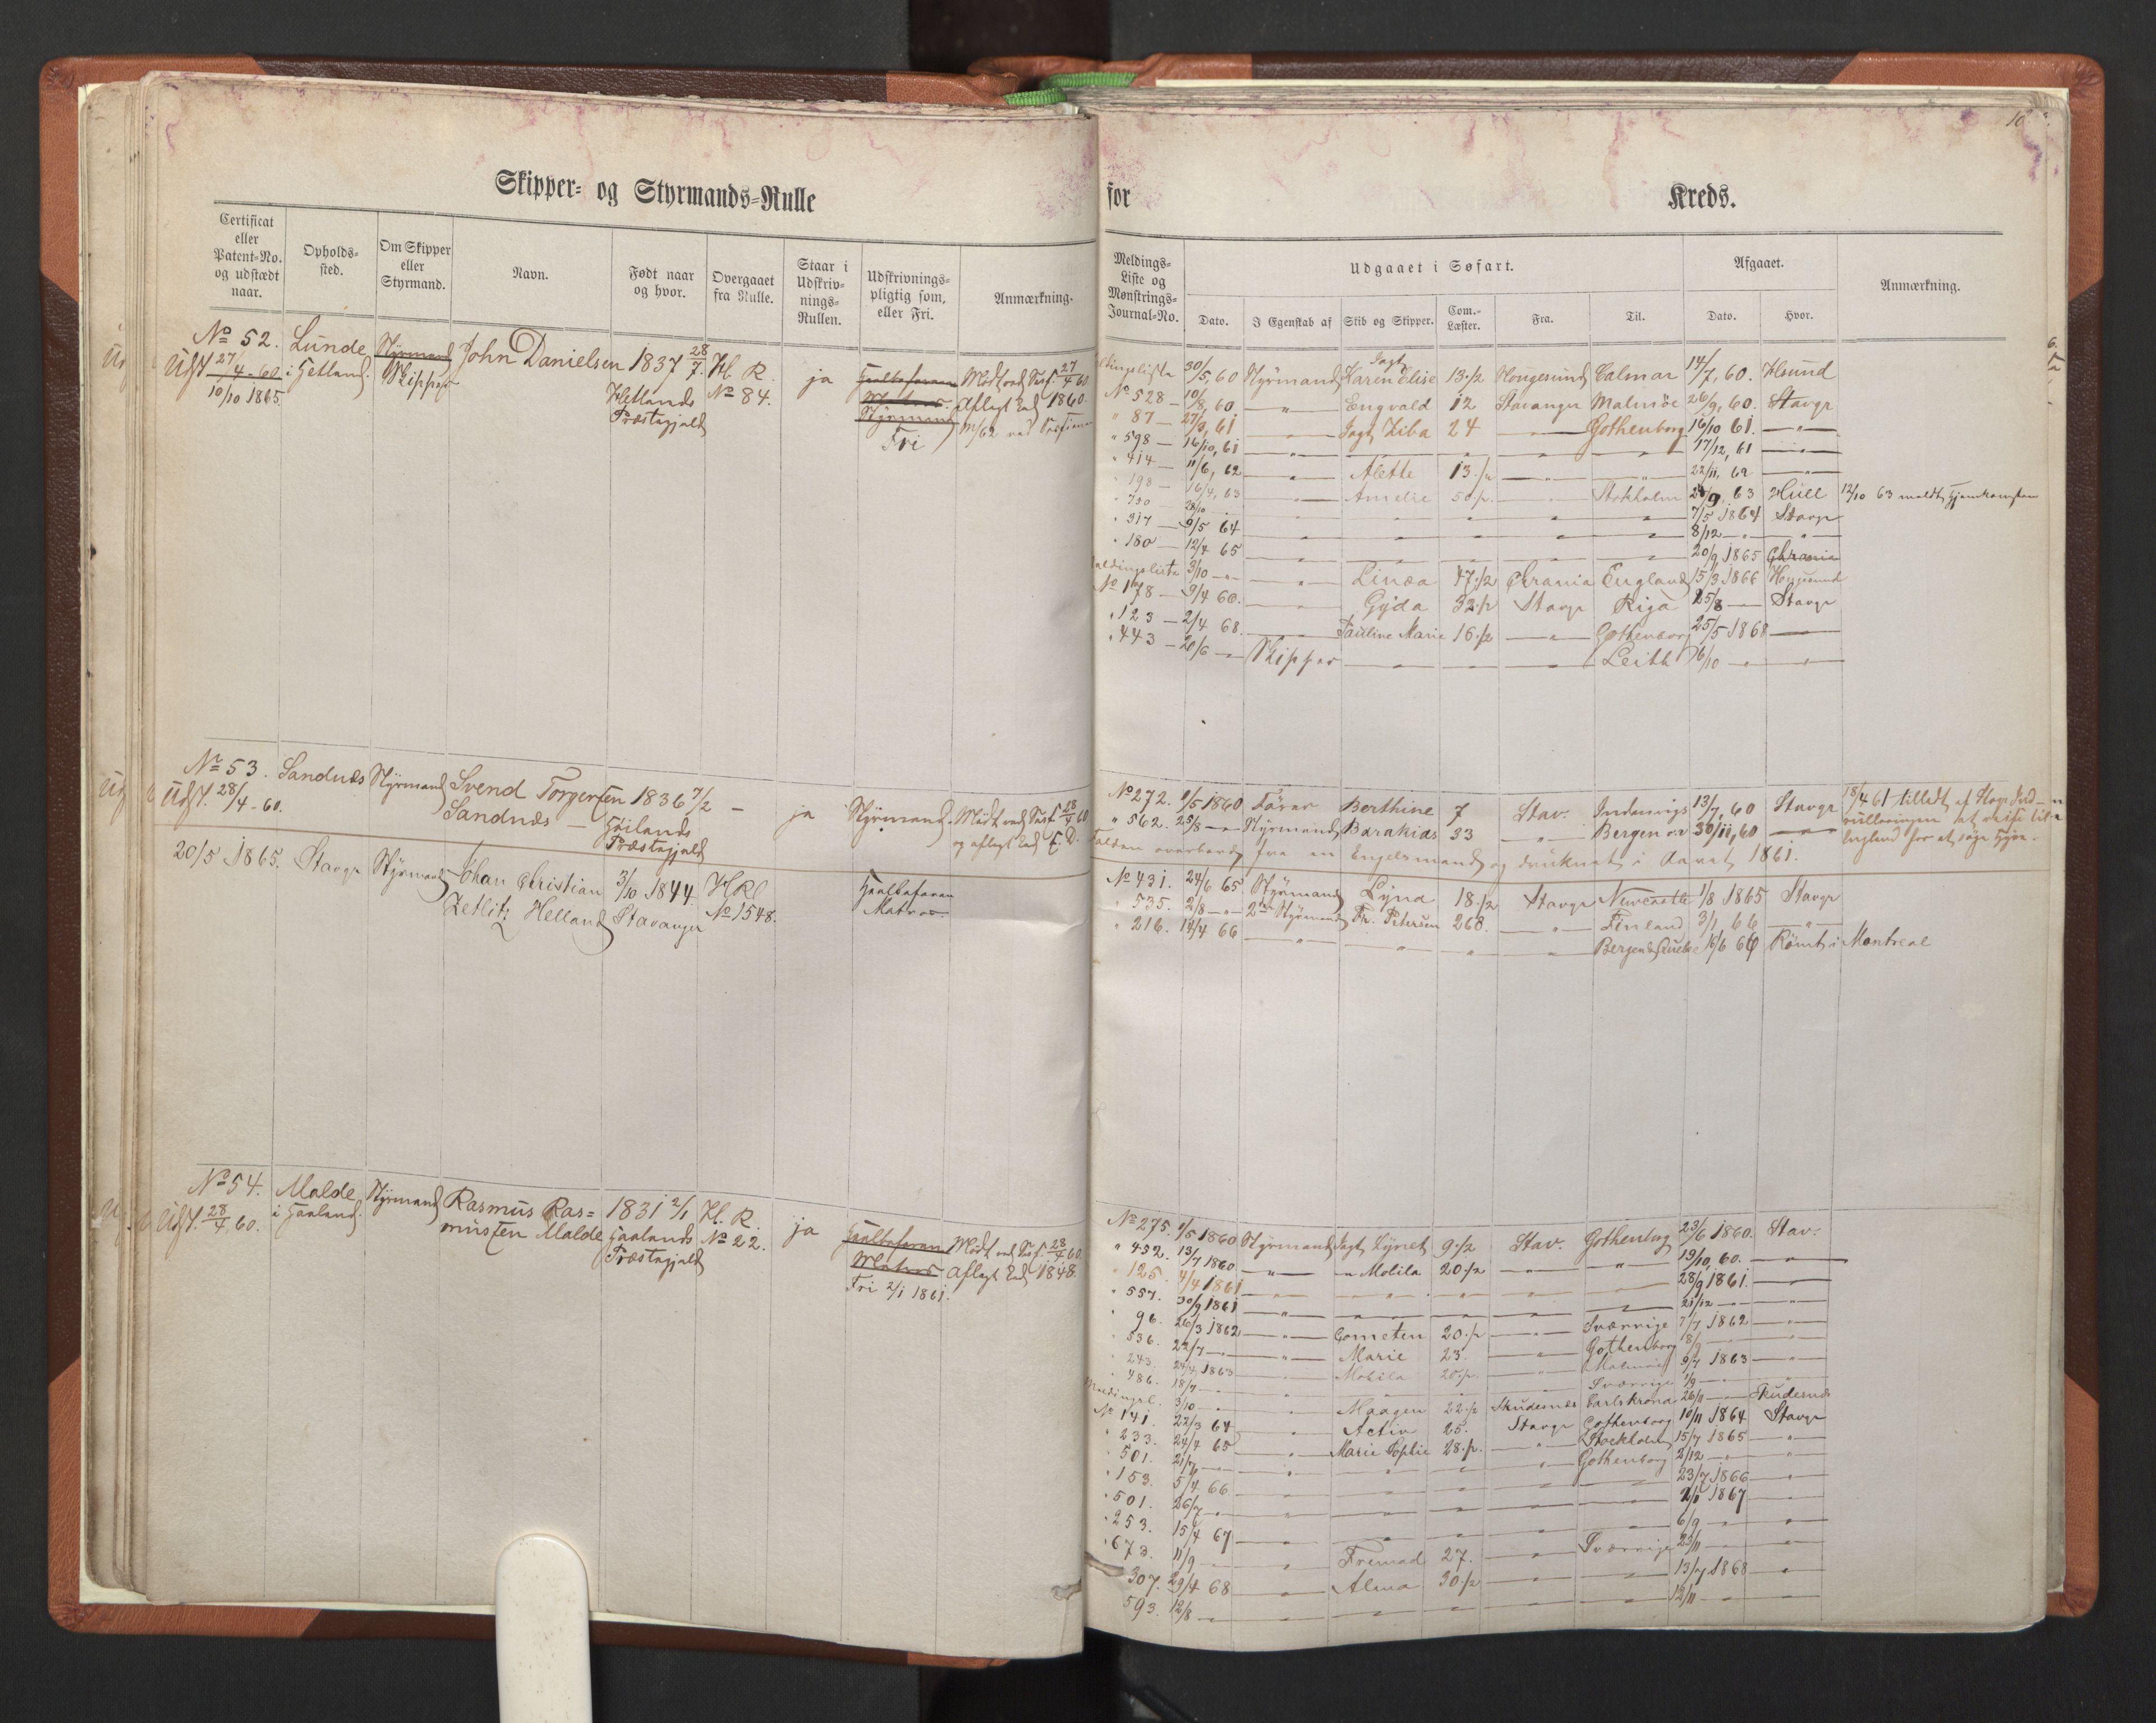 Skipper- og Styrmands-Rulle
Certificat eller Patent-No. og udstædt naar.
Opholds-sted.
Om Skipper eller Styrmand.
Navn.
Født naar og hvor.
Overgaaet fra Rulle.
Staar i Udskriv-nings-Rullen.
Udskrivnings-pligtig som, eller Fri.
Anmærkning.
No 52. Lunde Styrmand John Danielsen 1837 28/7. Hl. R. ja
Udst 27/4 - 60. i Hetland. Skipper Hetlands No 84.
10/10 1865. Præstegjeld
Aflagt Eed 1860.
Styrmand
Fri
No 53. Sandnæs Styrmand Svend Torgersen 1836 7/2 — ja Styrmand.
Udst. 28/4 - 60. Sandnæs — Høilands
Præstegjeld og aflagt Eed
20/5 1865. Stavgr Styrmand Johan Christian 3/10 1844.
Zetlitz Helland Stavanger No 1548. Matros.
No 54. Malde Styrmand Rasmus Ras= 1831 2/1 Hl. R. ja
Udst. 28/4, 60. i Haaland. mussen Malde Haalands No 22.
Præstegjeld Matros Aflagt Eed 1848.
Fri 2/1 1861.
for Kreds.
10
Meldings-Liste og Mønstrings-Journal-No.
Udgaaet i Søfart.
Afgaaet.
Anmærkning.
Dato.
I Egenskab af
Skib og Skipper.
Com.-Læster.
Fra.
Til.
Dato.
Hvor.
30/5, 60 Styrmand Jagt Karen Elise 13 1/2 Hougesund Calmar 14/7, 60. Hsund
No 528 — 10/8, 60 — " — Engvald 12 Stavanger Malmöe 26/9, 60. Stavgr
" 87 — 61 — " — Jagt Ziba 24 — " — Gothenborg 16/10 61. — " —
" 598 — 16/10, 61 — " — 17/12, 61 — " —
" 414 — 11/6, 62 — " — Alette 13 1/2 — " — 22/11, 62 — " —
" 198 — 16/4, 63 — " — Amelie — " — Stokholm 63 Hull 12/10 63 meldt Hjemkomsten
28/10 — " — 7/5 1864 Stavgr
" 317 — 9/5 64 — " — 8/12 — " —
" 180 — 12/4 65 — " — 20/9 1865
3/10 — " — Linea 47 1/2 England 15/3 1866
No 178 — 9/4 66. — " — Gyda 32 1/2 Stavgr Riga 25/8 — Stavgr
" 123 — 2/4 68. — " — Pauline Marie 16 1/2 — " — Gothenborg 25/5 1868 — " —
" 443 — 20/6 — " — Skipper — " — Leith 16/10 — " —
No 272. 1860 Fører Berthine 7 Stav. 13/7, 60 Stavgr
" 562. 25/8 — " — Styrmand Barakias 33 — " — Bergen 30/11, 60 — " —
18/4 61 tilladt af
rulleringen at reise til
England for at søge Hyre.
Falden overbord fra en Engelsmand og druknet i Aaret 1861.
No 431. 24/6 65 Styrmand Lyna 18 1/2 Stavgr Newcastle 1/8 1865 Stavgr
" 535. 2/8 — " — 2den Styrmand Fr. Petersen 268. — " — Finland 3/1 66 — " —
" 216. 14/4 66 — " — 16/6 66 Rømt i Montreal
No 275. 1860 Styrmand Jagt Lynet 9 1/2 Stav. Gothenborg 23/6 1860. Stav.
" 452. 13/7 1860 — " — Mobila 20 1/2 — " — 19/10, 60. — " —
" 125. 4/4 1861 — " — 28/9 1861. — " —
" 557. 30/9 1861 — " — 21/12 — " —
" 96. 26/3 1862 — " — Cometen 20 1/2 — " — Sværrige 7/7 1862 — " —
" 536. 22/7 — " — Marie 23. — " — Gothenborg — " —
" 243. 1863 — " — Mobila 20 1/2 — " — 9/7 1863 — " —
" 486. 18/7 — " — Sværrige 1/9 — " —
3/10 — " — Maagen 22 1/2 Skudesnæs Carlskrona 26/11 — Skudesnæs
No 141. 22/3 64 — " — Activ 25. Stavgr Gothenborg 10/11 1864 Stavgr
" 233. 24/4 65 — " — Marie Sophie 28 1/2 — " — Stockholm 15/7 1865 — " —
" 501. 21/7 — " — Gothenborg 2/12 — " —
" 153. 5/4 66 — " — 23/7 1866 — " —
" 501. 26/7 — " — 1867 — " —
" 253. 15/4 67 — " — 6/9 — " —
" 673. 11/9 — " — Fremad 27. — " — Sværrige 23/11 — " —
307. 29/4 68 — " — Alma 30 1/2 — " — 13/7 1868 — " —
593. 12/8 — " — 12/11 — " —